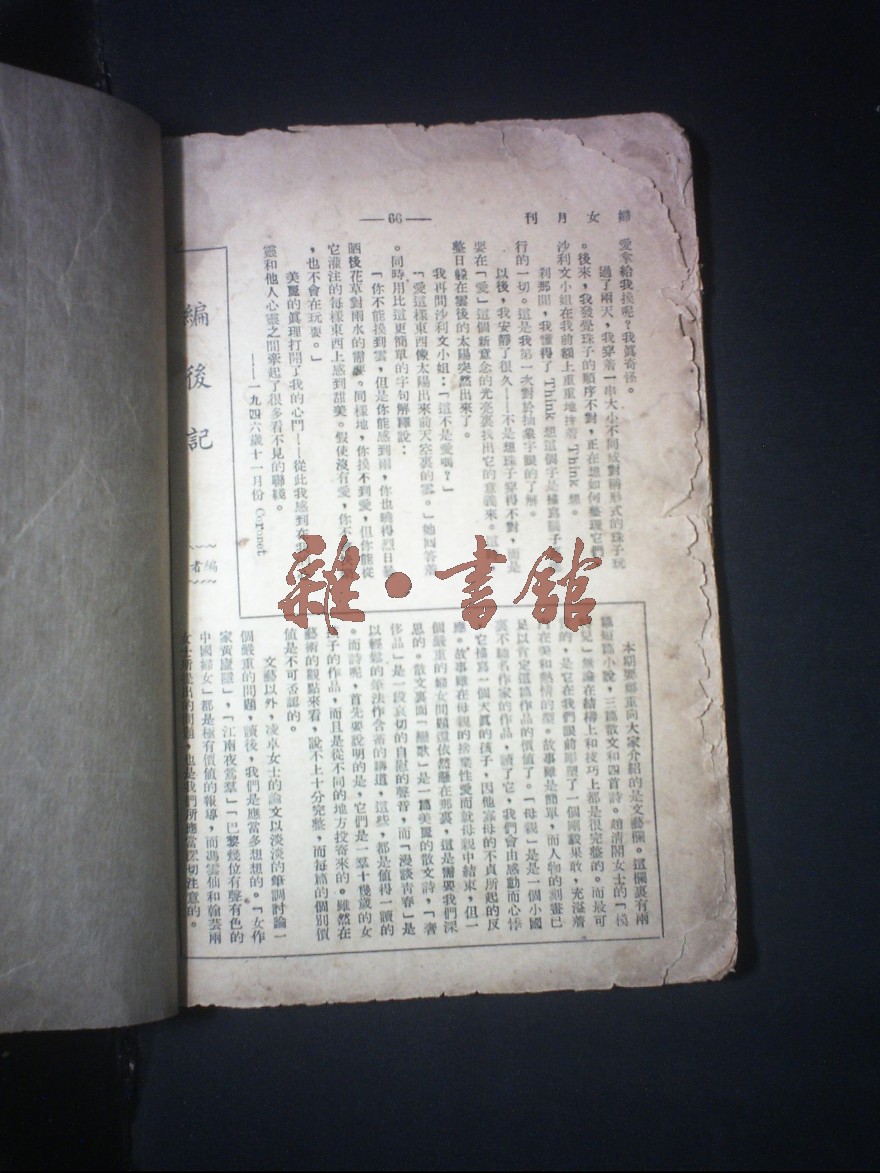 婦女月刊
—66—
愛拿給我摸呢?我眞奇怪。
過了兩天,我穿着一串大小不同成對稱形式的珠子玩
。後來,我發覺珠子的順序不對,正在想如何整理它們
沙利文小姐在我前額上重重地拌着 Think 想。
刹那間,我懂得了 Think 想這個字是描寫腦子
行的一切。這是我第一次對於抽象字眼的了解。
以後,我安靜了很久——不是想珠子穿得不對,而是
要在「愛」這個新意念的光亮裏找出它的意義來。這
整日躲在雲後的太陽突然出來了。
我再問沙利文小姐:「這不是愛嗎?」
「愛這樣東西像太陽出來前天空裏的雲。」她回答着
。同時用比這更簡單的字句解釋說:
「你不能摸到雲,但是你能感到雨,你也曉得烈日暴
晒後花草對雨水的需要。同樣地,你摸不到愛,但你能從
它灌注的每樣東西上感到甜美。假使沒有愛,你不
,也不會在玩耍。」
美麗的眞理打開了我的心門——從此我感到在我
靈和他人心靈之間牽起了很多看不見的聯綫。
——一九四六歲十一月份 Coronet
編後記
編者
本期要鄭重向大家介紹的是文藝欄。這欄裏有兩
篇短篇小說,三篇散文和四首詩。趙淸閣女士的「模
見」無論在結構上和技巧上都是很完整的。而最可
的,是它在我們眼前彫塑了一個剛毅果敢,充溢着
在美和熱情的型。故事雖是簡單,而人物的刻畫已
足以肯定這篇作品的價值了。「母親」是是一個小國
裏不聽名作家的作品,讀了它,我們會由感動而心悸
。它描寫一個天眞的孩子,因他寡母的不貞所起的反
應。故事雖在母親的捨棄性愛而就母親中結束,但一
個嚴重的婦女問題還依然懸在那裏,這是需要我們深
思的。散文裏面「戀歌」是一篇美麗的散文詩,「奢
侈品」是一段哀切的自慰的聲音,而「漫談靑春」是
以輕鬆的筆法作含蓄的講道,這些,都是値得一讀的
。而詩呢,首先要說明的是,它們是一羣十幾歲的女
孩子的作品,而且是從不同的地方投寄來的。雖然在
藝術的觀點來看,說不上十分完整,而每篇的個別價
値是不可否認的。
文藝以外,凌卓女士的論文以淡淡的筆調討論一
個嚴重的問題,讀後,我們是應當多想想的。「女作
家黃廬隱」,「江南夜鶯羣」「巴黎幾位有聲有色的
中國婦女」都是極有價値的報導,而馮雲仙和翰芸兩
女士所提出的問題,也是我們所應當深切注意的。
雜·書館